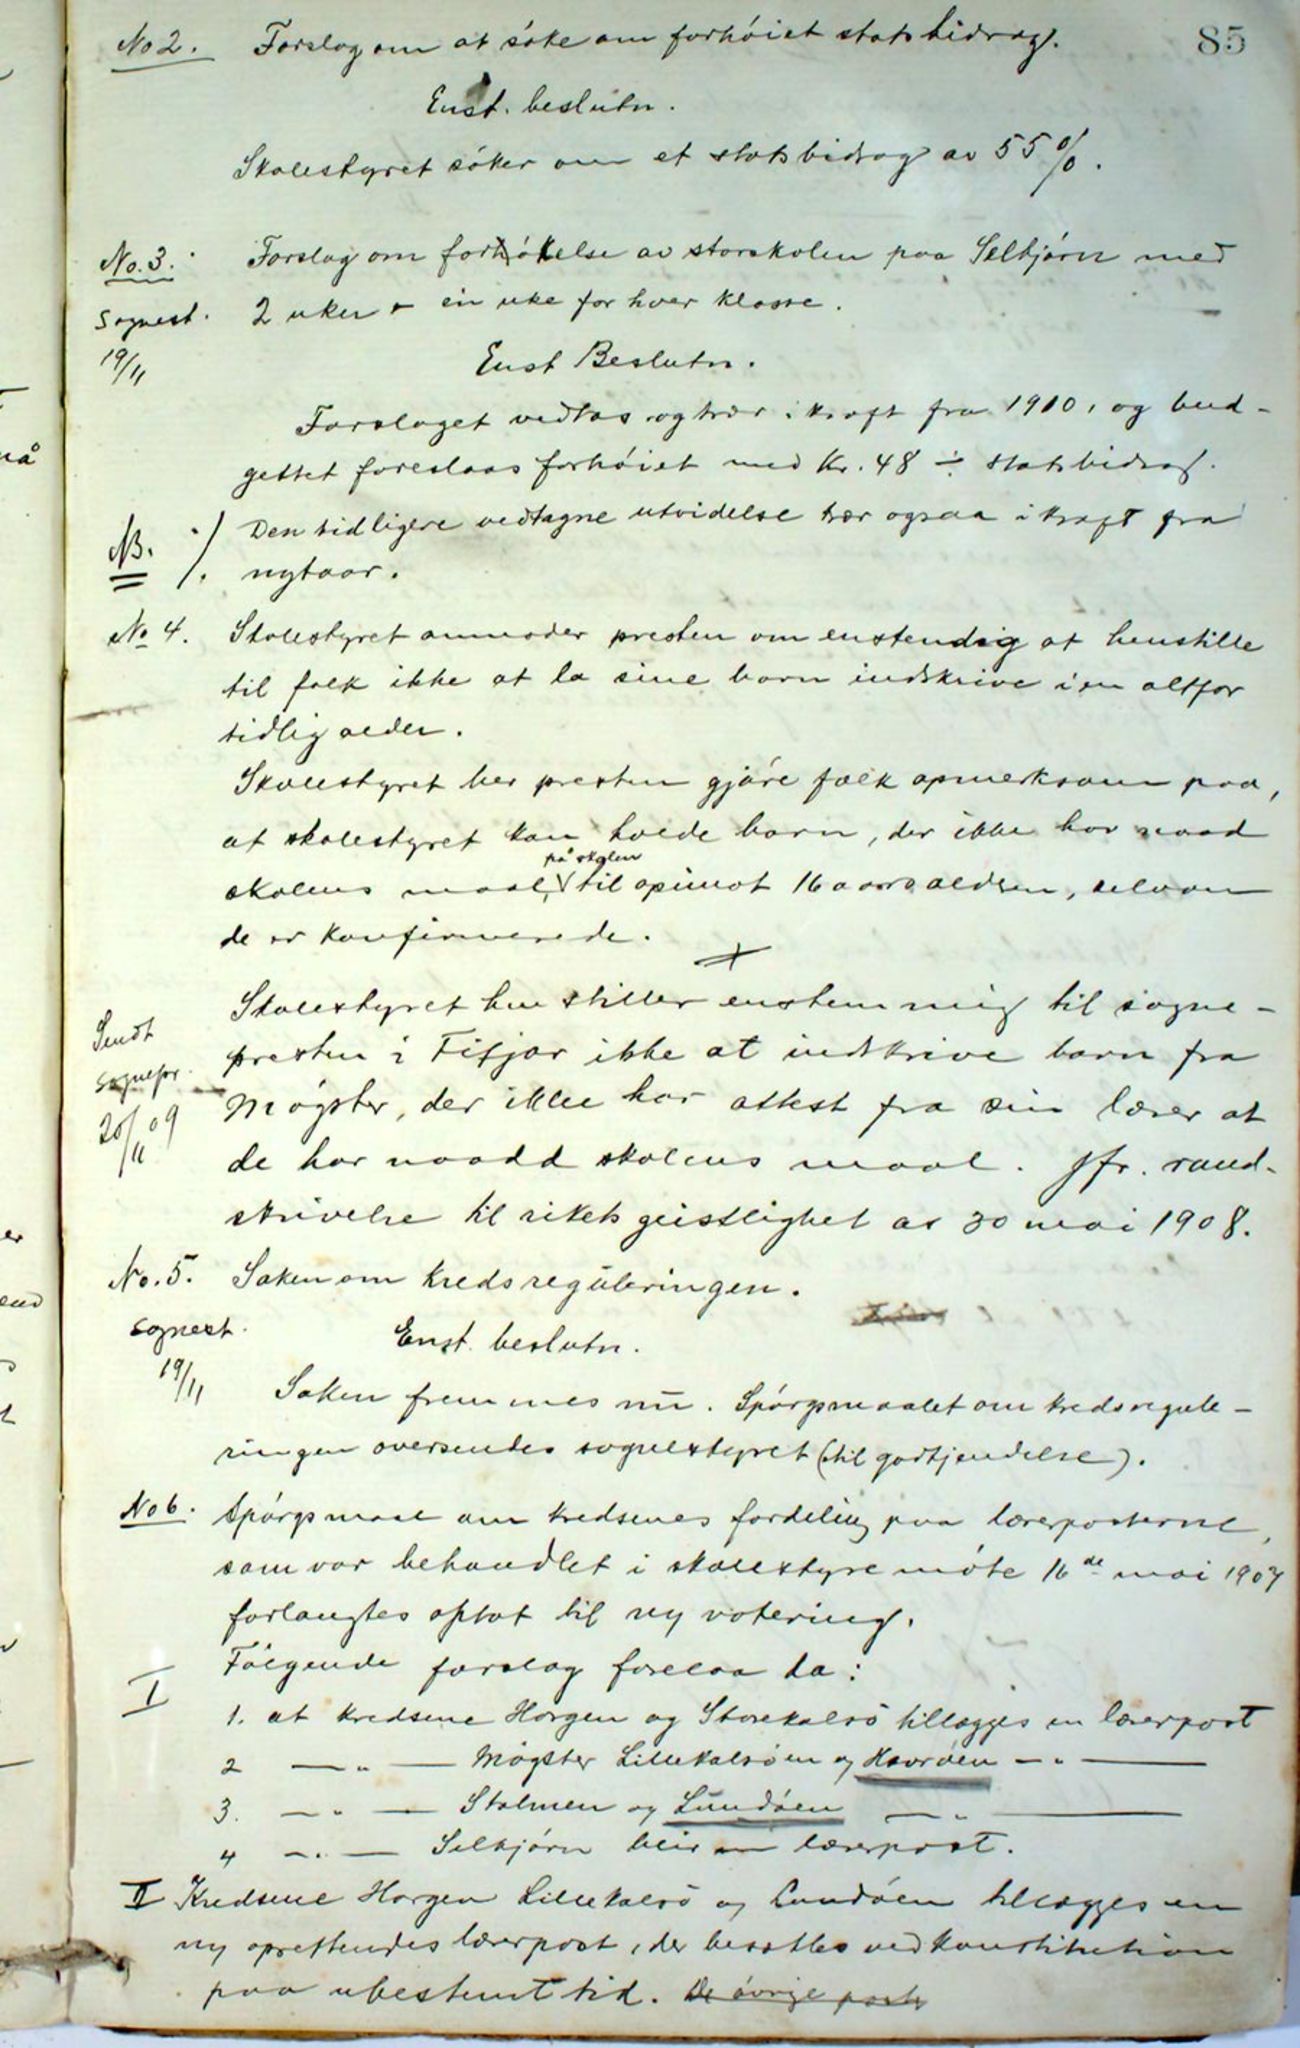 85
No 2. Forslag om at søke om forhøiet statsbidrag.
Enst. beslutn.
Skolestyret søker om et statsbidrag av 55 %.
No. 3. Forslag om forøkelse av storskolen paa Selbjørn med
Sognest. 2 uker - en uke for hver klasse.
19/11
Enst Beslutn.
Forslaget vedtas og trær i kraft fra 1910, og bud-
gettet foreslaas forhøiet med Kr. 48 ÷ statsbidrag.
NB. ·/. Den tidligere vedtagne utvidelse trær ogsaa i kraft fra
nytaar.
No 4. Skolestyret anmoder presten om enstendig at henstille
til folk ikke at la sine barn indskrive i en altfor
tidlig alder.
Skolestyret ber presten gjøre folk opmerksom paa,
at skolestyret kan holde barn, der ikke har naad
skolens maal, på skolen til opimot 16 aars alderen, selvom
de er konfirmerede.
Skolestyret henstiller enstemmig til sogne-
Sendt
presten i Fitjar ikke at indskrive barn fra
sognepr.
Møgster, der ikke har attest fra sin lærer at
20/11 09
de har naadd skolens maal. Jfr. rund-
skrivelse til rikets geistlighet av 30 mai 1908.
No. 5. Saken om kredsreguleringen.
Sognest.
Enst. beslutn.
19/11
Saken fremmes nu. Spørgsmaalet om kredsregule-
ringen oversendes sognestyret (til godkjendelse).
No 6. Spørgsmaal om kredsenes fordeling paa lærerposterne,
som var behandlet i skolestyremøte 16de mai 1907
forlangtes optat til ny votering.
Følgende forslag forelaa da:
I
1. at kredsene Horgen og Storekalsø tillægges en lærerpost
2 — " — Møgster Lillekalsøen og Havrøen — " —
3. — " — Stolmen og Lundøen — " —
4 — " — Selbjørn blir en lærerpost.
II Kredsene Horgen Lillekalsø og Lundøen tillægges en
ny oprettendes lærerpost, der besættes ved konstitution
paa ubestemt tid. De øvrige poste